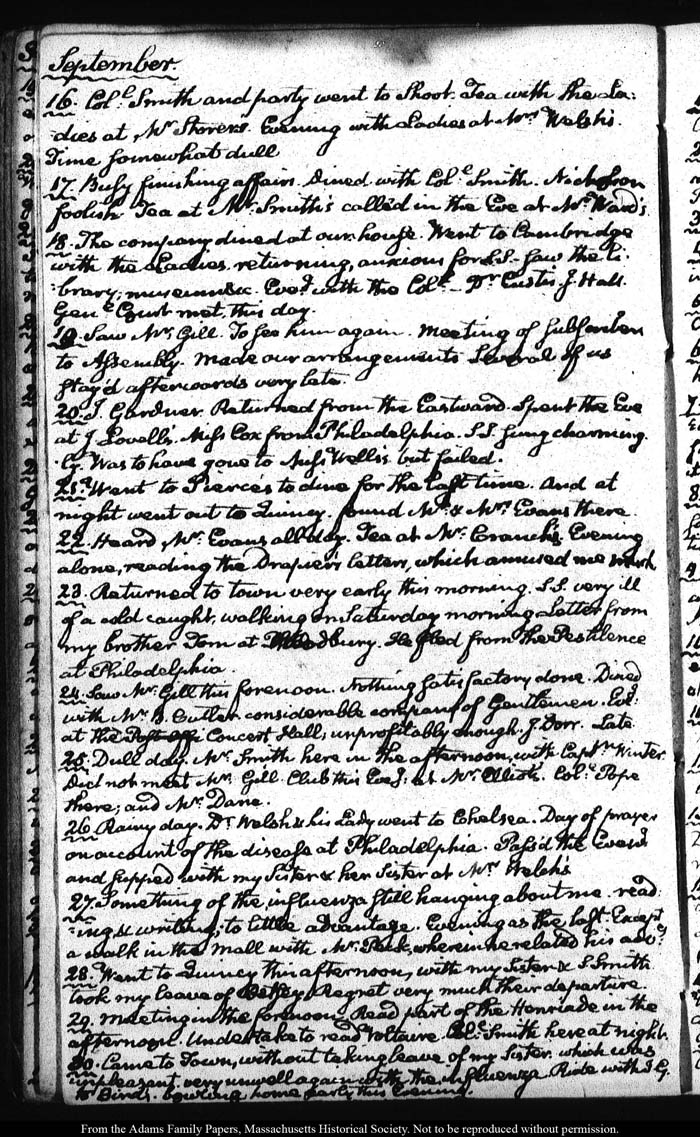 September.
16. Col.l Smith and party went to Shoot. Tea with the La:
:dies at Mr Storer's. Evening with Ladies at Mrs Welsh's.
Time somewhat dull
17. Busy finishing affairs. Dined with Col.l Smith. Nicholson
foolish. Tea at Mr Smith's called in the Eve at Mr Ward's
18. The company dined at our house. Went to Cambridge
with the Ladies, returning, anxious for S.S. Saw the li:
:brary; museum &c. Eveg with the Col.l — Dr Eustis J. Hall.
Genl Court met, this day.
19. Saw Mr Gill. To see him again. Meeting of subscribers
to Assembly. Made our arrangements Several of us
stay'd afterwards very late.
20. J. Gardner. Returned from the Eastward. Spent the Eve
at J Lovell's. Miss Cox from Philadelphia. S.S. sung charming
:ly. Was to have gone to Miss Wells's but failed.
21. Went to Pierce's to dine for the last time. And at
night went out to Quincy. found Mr & Mrs Evans there.
22. Heard Mr Evans all day. Tea at Mr Cranch's. Evening
alone, reading the Drapier's letters, which amused me much
23. Returned to town very early this morning. S.S. very ill
of a cold caught, walking on Saturday morning. Letter from
my brother Tom at Woodbury. He fled from the Pestilence
at Philadelphia.
24. Saw Mr Gill this forenoon. Nothing satisfactory done. Dined
with Mr B. Cutler considerable company of Gentlemen. Eve:
at the Concert Hall; unprofitably enough. J. Dorr. Late
25. Dull day. Mr Smith here in the afternoon, with Captn Winter.
Did not meet Mr Gill. Club this Eveg. at Mr Elliot's. Col.l Pope
there; and Mr Dane.
26. Rainy day. Dr Welsh & his Lady went to Chelsea. Day of prayer
on account of the disease at Philadelphia. Pass'd the Eveng
and supped with my Sister & her Sister at Mr Welch's
27. Something of the influenza still hanging about me. read:
:ing & writing; to little advantage. Evening as the last. Except
a walk in the Mall with Mr Peck, wherein he related his advs
28. Went to Quincy this afternoon, with my Sister & S. Smith
took my leave of Betsey. Regret very much their departure.
29. Meeting in the forenoon. Read part of the Henriade in the
afternoon. Undertake to read Voltaire. Col.l Smith here at night.
30. Came to Town, without taking leave of my Sister. which was
unpleasant. very unwell again with the influenza Ride with J. G.
to Bird's. bowling, home early this Evening.
From the Adams Family Papers, Massachusetts Historical Society. Not to be reproduced without permission.